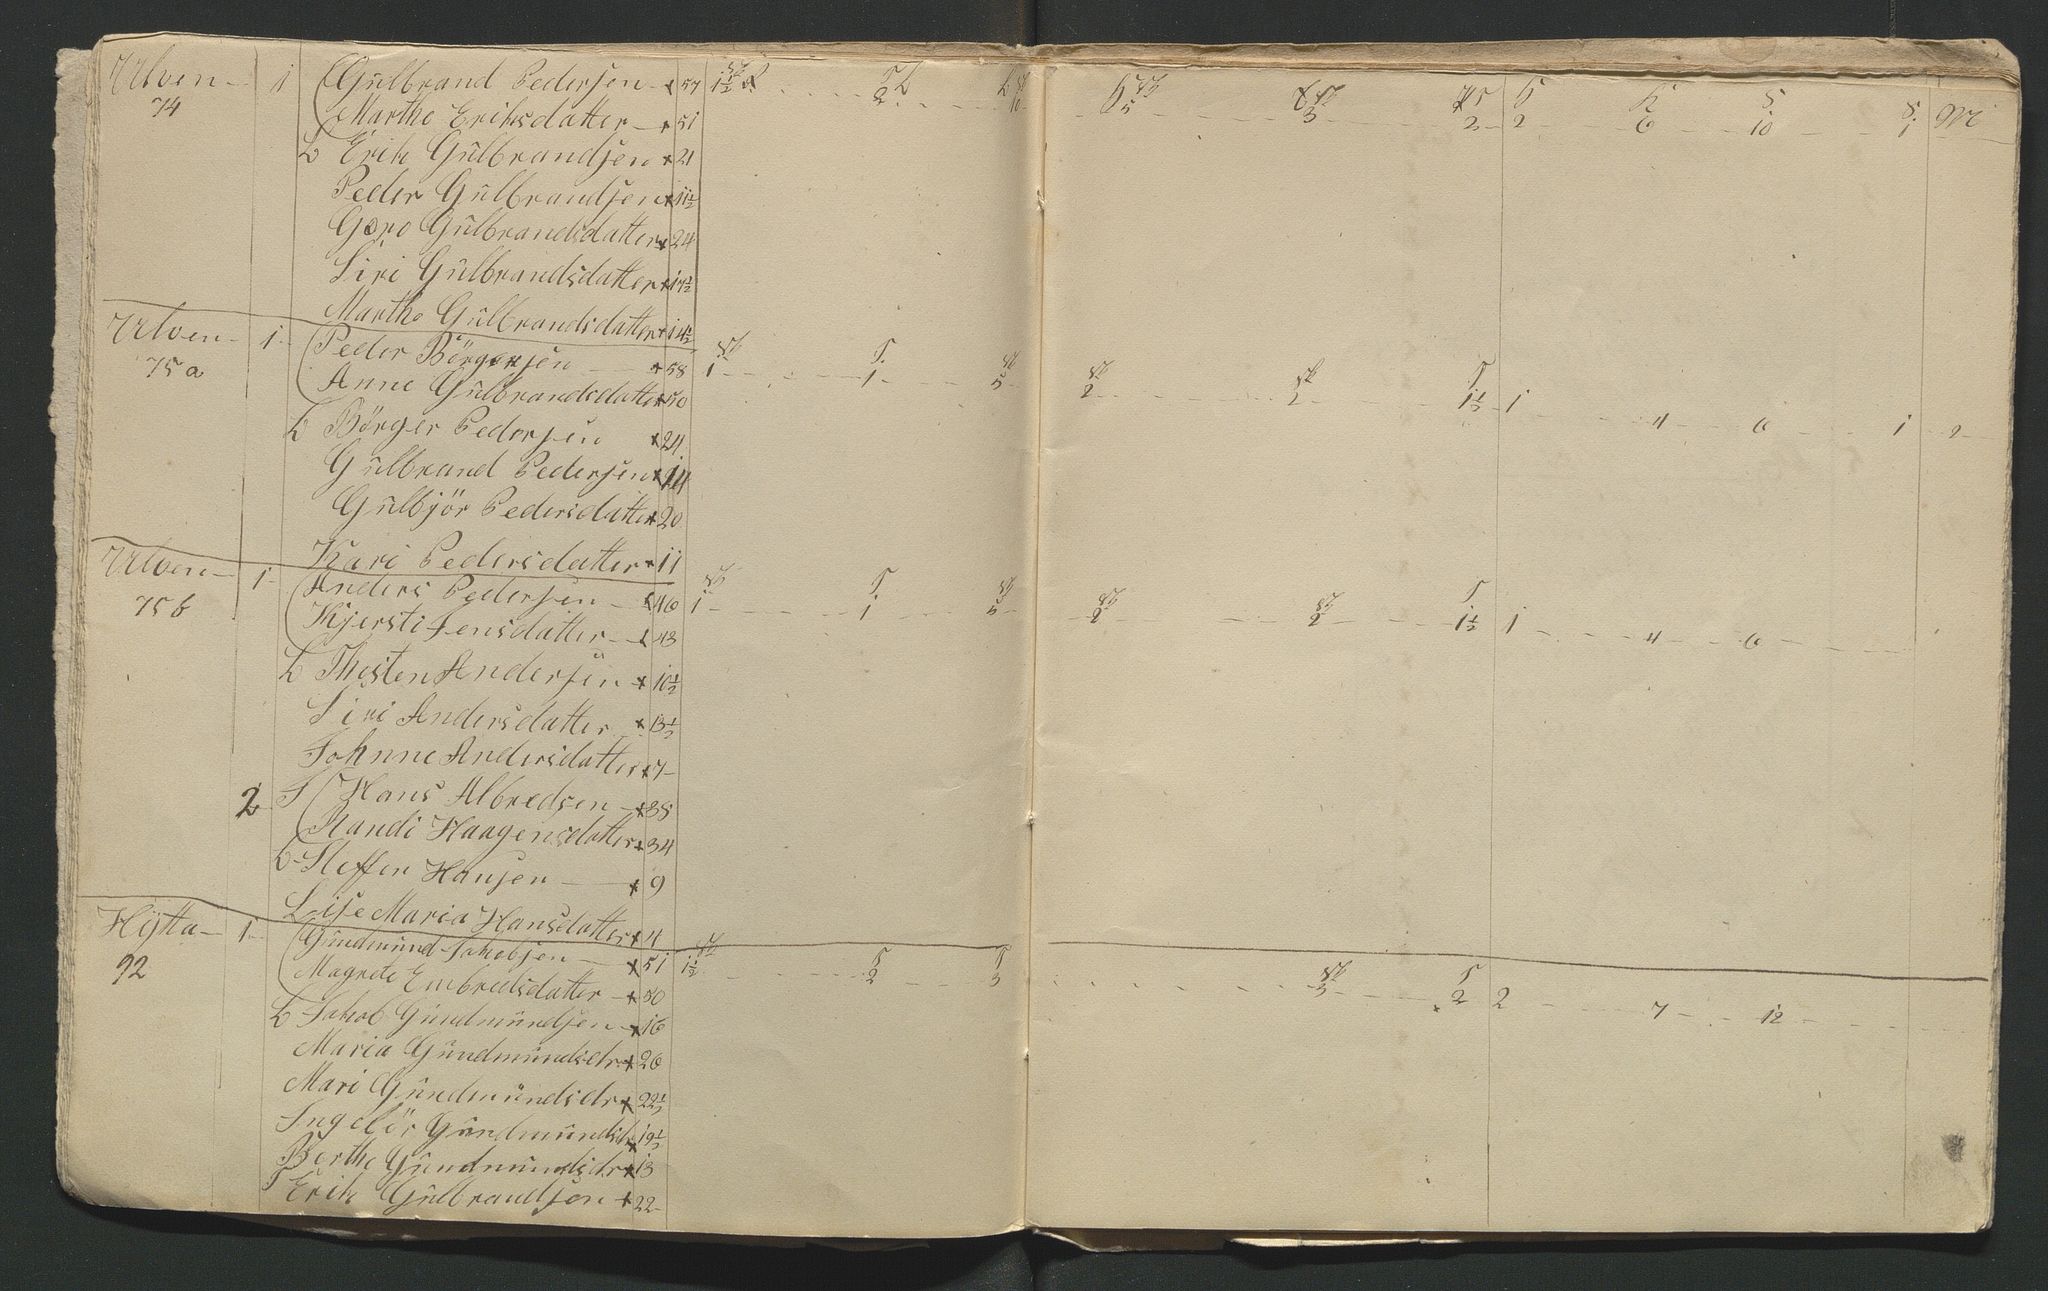 Ulven — 1 Gulbrand Pedersen 57 1½ 2 10 5 3 2 2 6 10 1
74 Marthe Eriksdatter — 51
L Erik Gulbrandsen 21
Peder Gulbrandsen 11½
Goro Gulbrandsdatter 24
Siri Gulbrandsdatter 17½
Marthe Gulbrandsdatter 14½
Ulven — 1 Peder Börgersen — 58 1 1 5 2 2 1½ 1 4 6 1 2
75a Anne Gulbrandsdatter 50
L Börger Pedersen 24
Gulbrand Pedersen 14
Gulbjör Pedersdatter 20
Kari Pedersdatter 11
Ulven — 1 Anders Pedersen — 46 1 1 5 2 2 1½ 1 4 6
75b Kjersti Jensdatter — 43
L Thosten Andersen 16½
Siri Andersdatter 13½
Johnne Andersdatter 7
2 Hans Albredsen — 38
Randi Haagensdatter 34
L Steffen Hansen — 9
Lise Maria Hansdatter 4
Hytta — 1 Gundmund Jakobsen — 51 1½ 2 3 3 2 2 7 12
92 Magrete Embredsdatter — 50
L Jakob Gundmundsen 16
Maria Gundmundsdr 26
Mari Gundmundsdr 22½
Ingebör Gundmundsdr 19½
Berthe Gundmundsdr 13
Erik Gulbrandsen 22